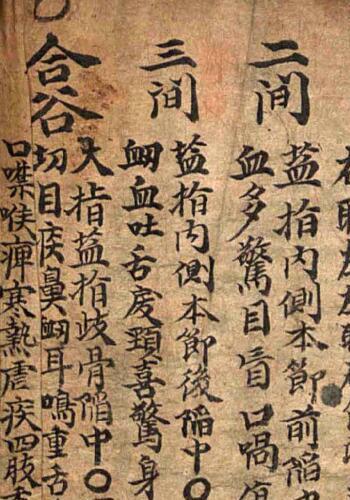 二间
盐指内側本節前陥
血多驚目盲口喎
三间
盐指内側本節後陥中〇
衂血吐舌戾頸喜驚身
合谷
大指盐指歧骨陥中〇
切目疾鼻衂耳鳴重舌
口噤喉痺寒熱瘧疾四肢